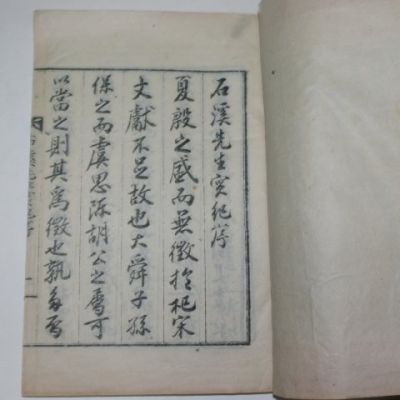 石溪先生實紀序
夏殷之盛而無徵於杞宋
文獻不足故也大舜子孫
保之而虞思陳胡公之屬可
以當之則其爲徵也孰多焉
石溪先生實紀序